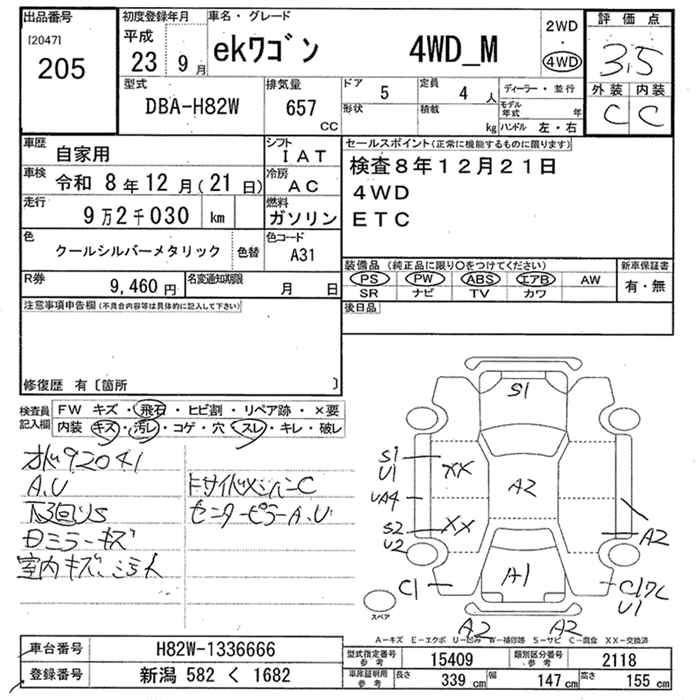 出品番号
[2047]
205
初度登録年月
平成
23 9月
車名・グレード
ekワゴン 4WD_M
2WD
・
4WD
評価点
3.5
外装 内装
C C
型式
DBA-H82W
排気量
657
CC
ドア 5
定員 4 人
形状
積載 kg
ディーラー・並行
モデル年式 年
ハンドル 左・右
車歴
自家用
シフト
IAT
車検
令和 8年12月(21日)
冷房
AC
走行
9万2千030 km
燃料
ガソリン
色
クールシルバーメタリック
色替
色コード
A31
R券
9,460円
名変通知期限
月 日
セールスポイント(正常に機能するものに限ります)
検査8年12月21日
4WD
ETC
装備品 (純正品に限り○をつけてください)
PS PW ABS エアB AW
SR ナビ TV カワ
新車保証書
有・無
後日品
注意事項申告欄(不具合内容等は具体的に記入して下さい)
修復歴 有〔箇所 〕
検査員記入欄
FW キズ・飛石・ヒビ割・リペア跡・×要
内装 キズ・汚レ・コゲ・穴・スレ・キレ・破レ
92041
A.U
下回りS
ミラーキズ
室内キズ、
センターピラーA.U
S1
S1
U1
XX
UA4
A2
S2
U2
XX
A2
C1
A1
U1
A2
A2
スペア
A-キズ E-エクボ U-凹み W-補修跡 S-サビ C-腐食 XX-交換済
車台番号
H82W-1336666
登録番号
新潟 582 く 1682
型式指定番号
参考
15409
類別区分番号
参考
2118
車庫証明用
参考
長さ 339 cm
幅 147 cm
高さ 155 cm